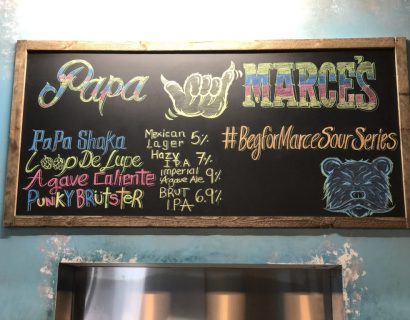 Papa MARCE'S
PaPa Shaka Mexican Lager 5%
Loop De Lupe Hazy IPA 7%
Agave Caliente imperial Agave Ale 9%
PUNKY BRUTSTER BRUT IPA 6.9%
#BegforMarceSourSeries